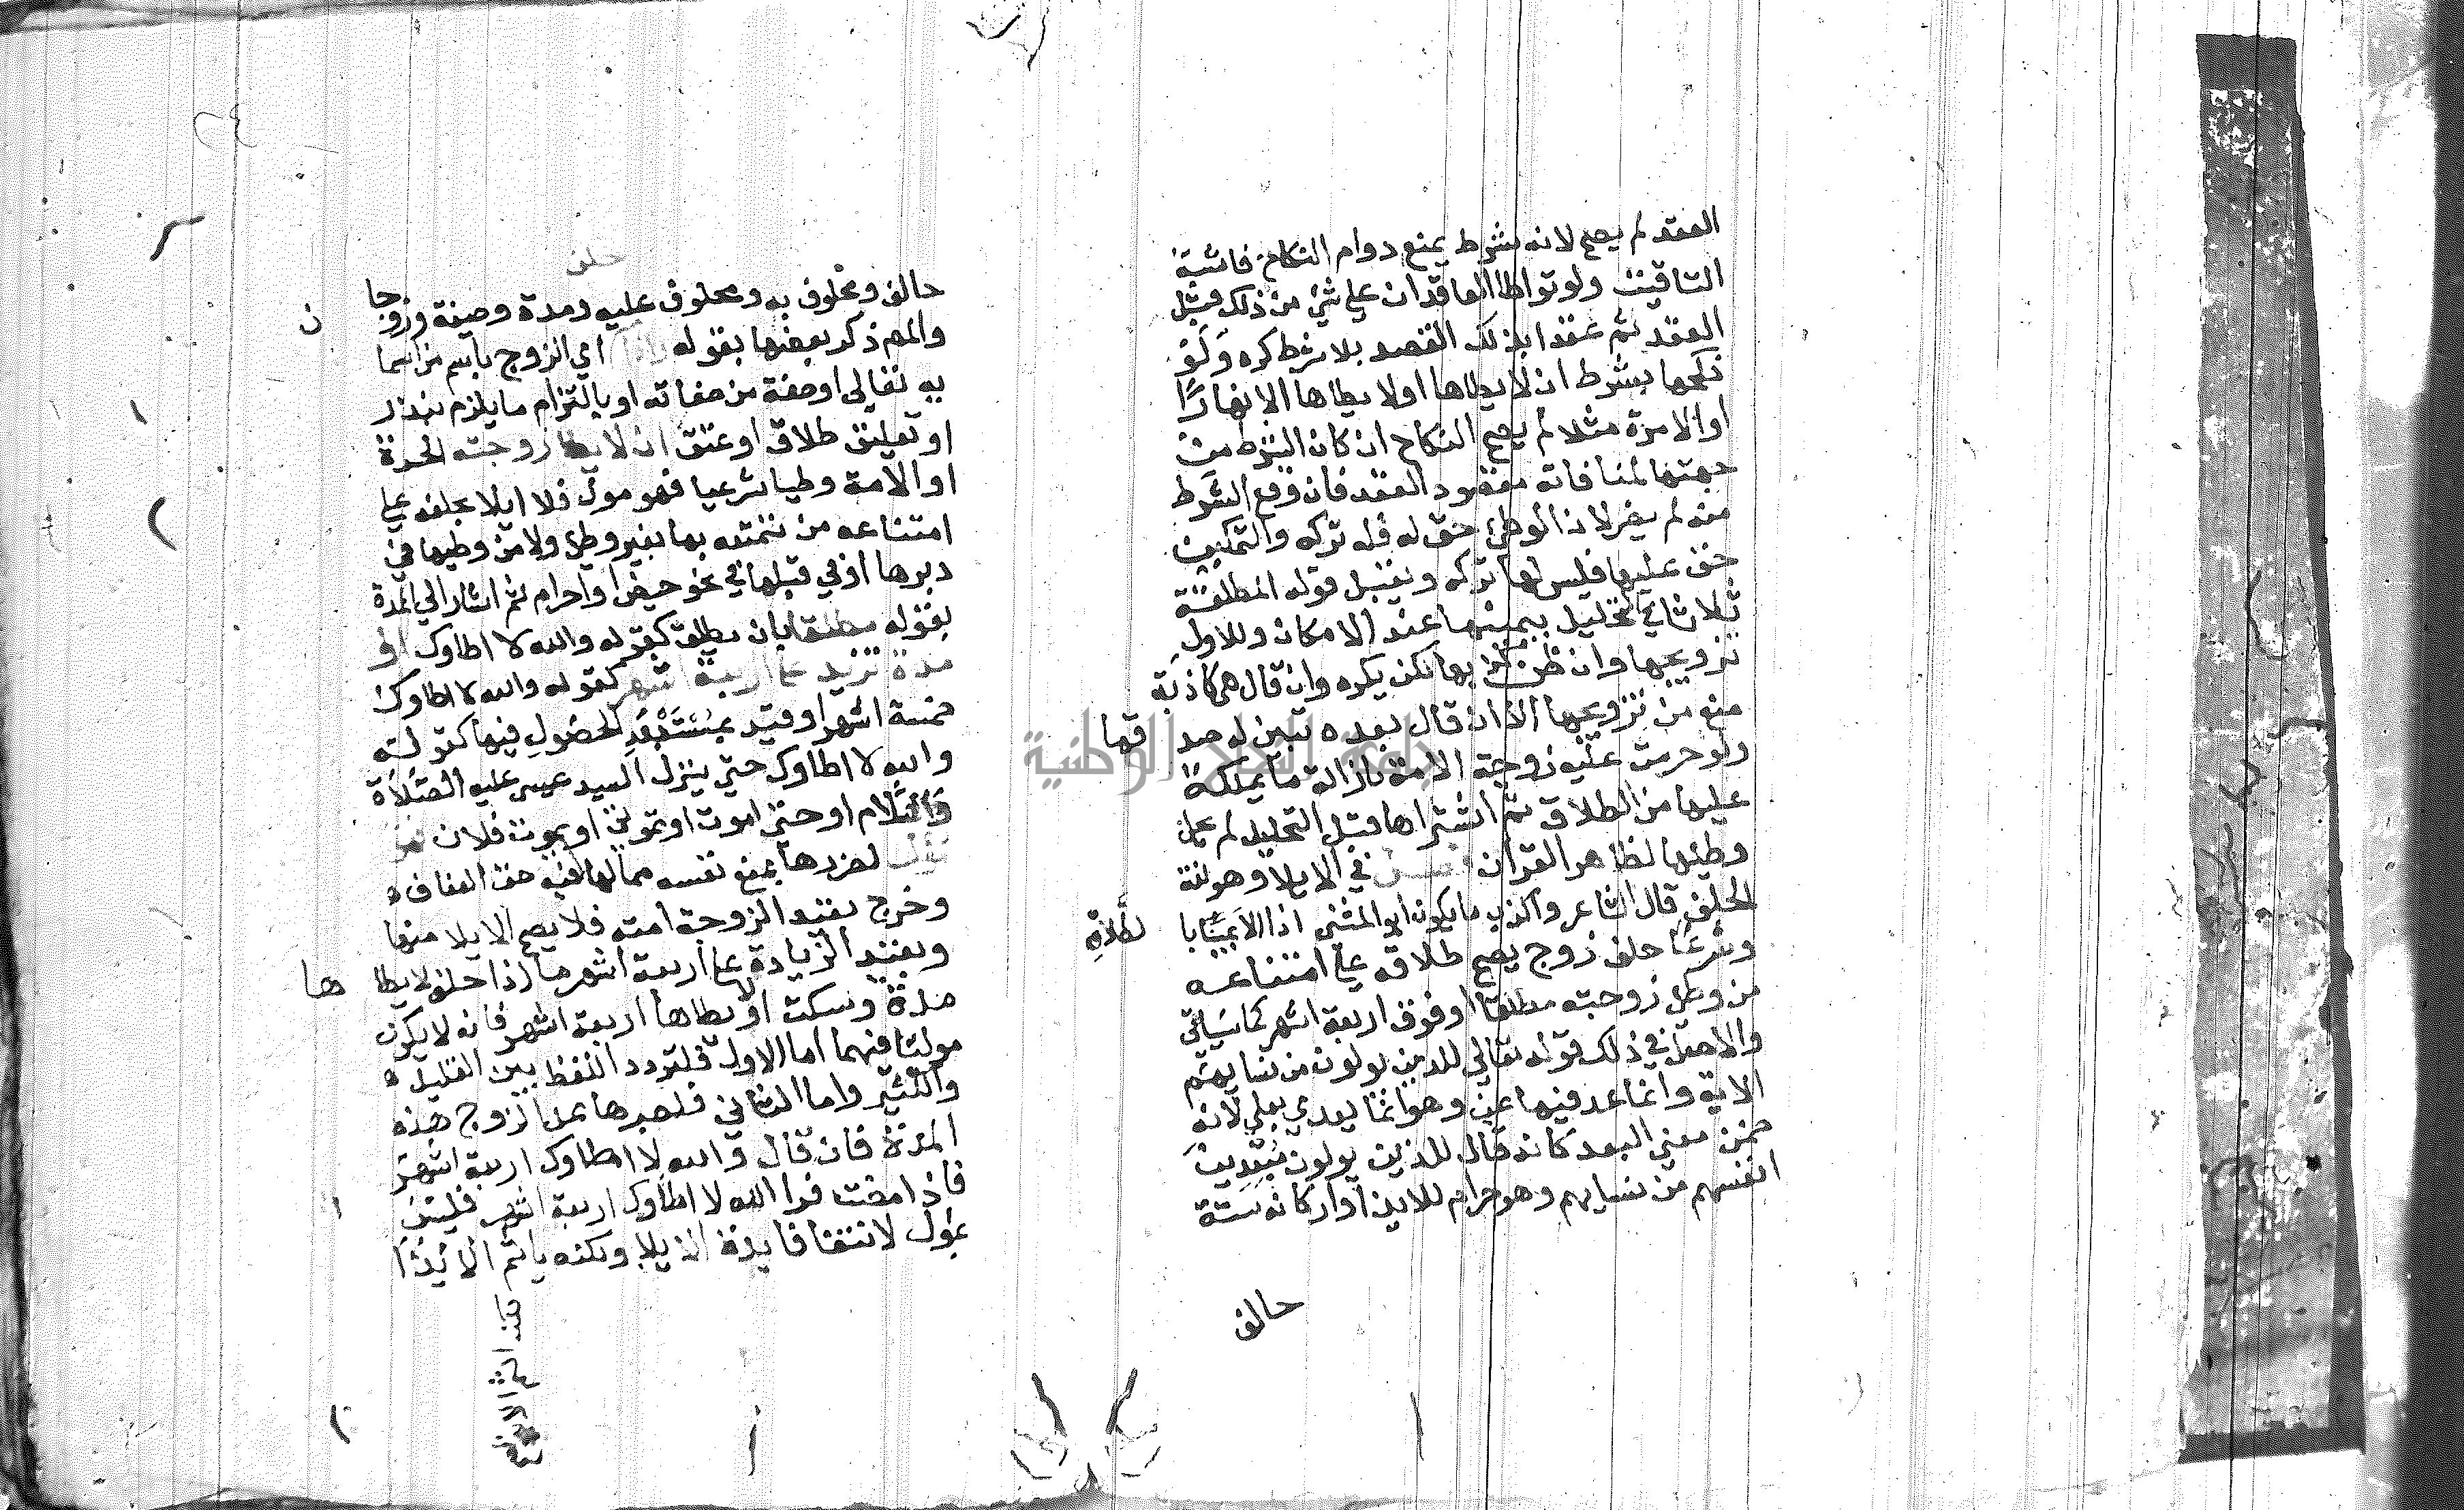 العقد لم يصح لانه شرط يمنع دوام النكاح فاشبه
التاقيت ولو تواطا العاقدان على شئ من ذلك قبل
العقد ثم عقدا بذلك القصد بلا شرط كره ولو
نكحها بشرط ان لا يطاها اولا يطاها الا نهارا
او الا مرة مثلا لم يصح النكاح ان كان الشرط من
جهتها لمنافاته مقصود العقد فان وقع الشرط
منه لم يضر لان الوطئ حق له فله تركه والتمكين
حق عليها فليس لها تركه ويقبل قول المطلقة
ثلاثا في التحليل بيمينها عند الامكان وللاول
تزويجها وان ظن كذبها لكن يكره وان قال هي كاذبة
منع من تزويجها الا ان قال بعده تبين لي صد قها
ولو حرمت عليه زوجته الامة بازالة ما يملكه
عليها من الطلاق ثم اشتراها قبل التحليل لم يحل
وطئها لظاهر القران فصل في الايلا وهو لغة
الحلف قال الشاعر واكذب ما يكون ابو المثنى اذا الا يمينا با لطلاق
وشرعا حلف زوج يصح طلاقه على امتناعه
من وطئ زوجته مطلقا او فوق اربعة اشهر كما سياتي
والاصل في ذلك قوله تعالى للذين يولون من نسايهم
الاية وانما عد فيها بمن وهو انما يعدى بعلى لانه
ضمن معنى البعد كانه قال للذين يولون مبعدين
انفسهم من نسايهم وهو حرام للايذا واركانه ستة
حالف
حلف
حالف ومحلوف به ومحلوف عليه ومدة وصيغة وزوجا ن
والمص ذكر بعضها بقوله واذا اي الزوج باسم من اسما
يه تعالى او صفة من صفاته او بالتزام ما يلزم بنذر
او تعليق طلاق او عتق ان لا يطا زوجته الحرة
او الامة وطيا شرعيا فهو مول فلا ايلا بحلفه على
امتناعه من تمتعه بها بغير وطئ ولا من وطيها في
دبرها او في قبلها في نحو حيض او احرام ثم اشار الى المدة
بقوله مطلقا بان يطلق كقوله والله لا اطاوك او
مدة تزيد على اربعة اشهر كقوله والله لا اطاوك
خمسة اشهر او قيد بمستبعد الحصول فيها كقوله
والله لا اطاوك حتى ينزل السيد عيسى عليه الصلاة
والسلام او حتى اموت او تموتي او يموت فلان
لضررها بمنع نفسه مما لها فيه حق العفاف
وخرج بقيد الزوجة امته فلا يصح الايلا منها
وبقيد الزيادة على اربعة اشهر ما اذا حلف لا يطا ها
مدة وسكت او لا يطاها اربعة اشهر فانه لا يكون
موليا فيهما اما الاول فلتردد اللفظ بين القليل
والكثير واما الثاني فلصبرها عن الزوج هذه
المدة فان قال والله لا اطاوك اربعة اشهر
فاذا مضت فوا الله لا اطاوك اربعة اشهر فليس
بمول لانتفا فايدة الايلا ولكنه ياثم الايذا